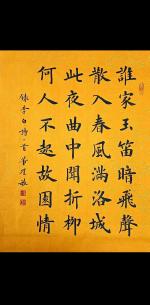 誰家玉笛暗飛聲
散入春風滿洛城
此夜曲中聞折柳
何人不起故園情
錄李白詩一首